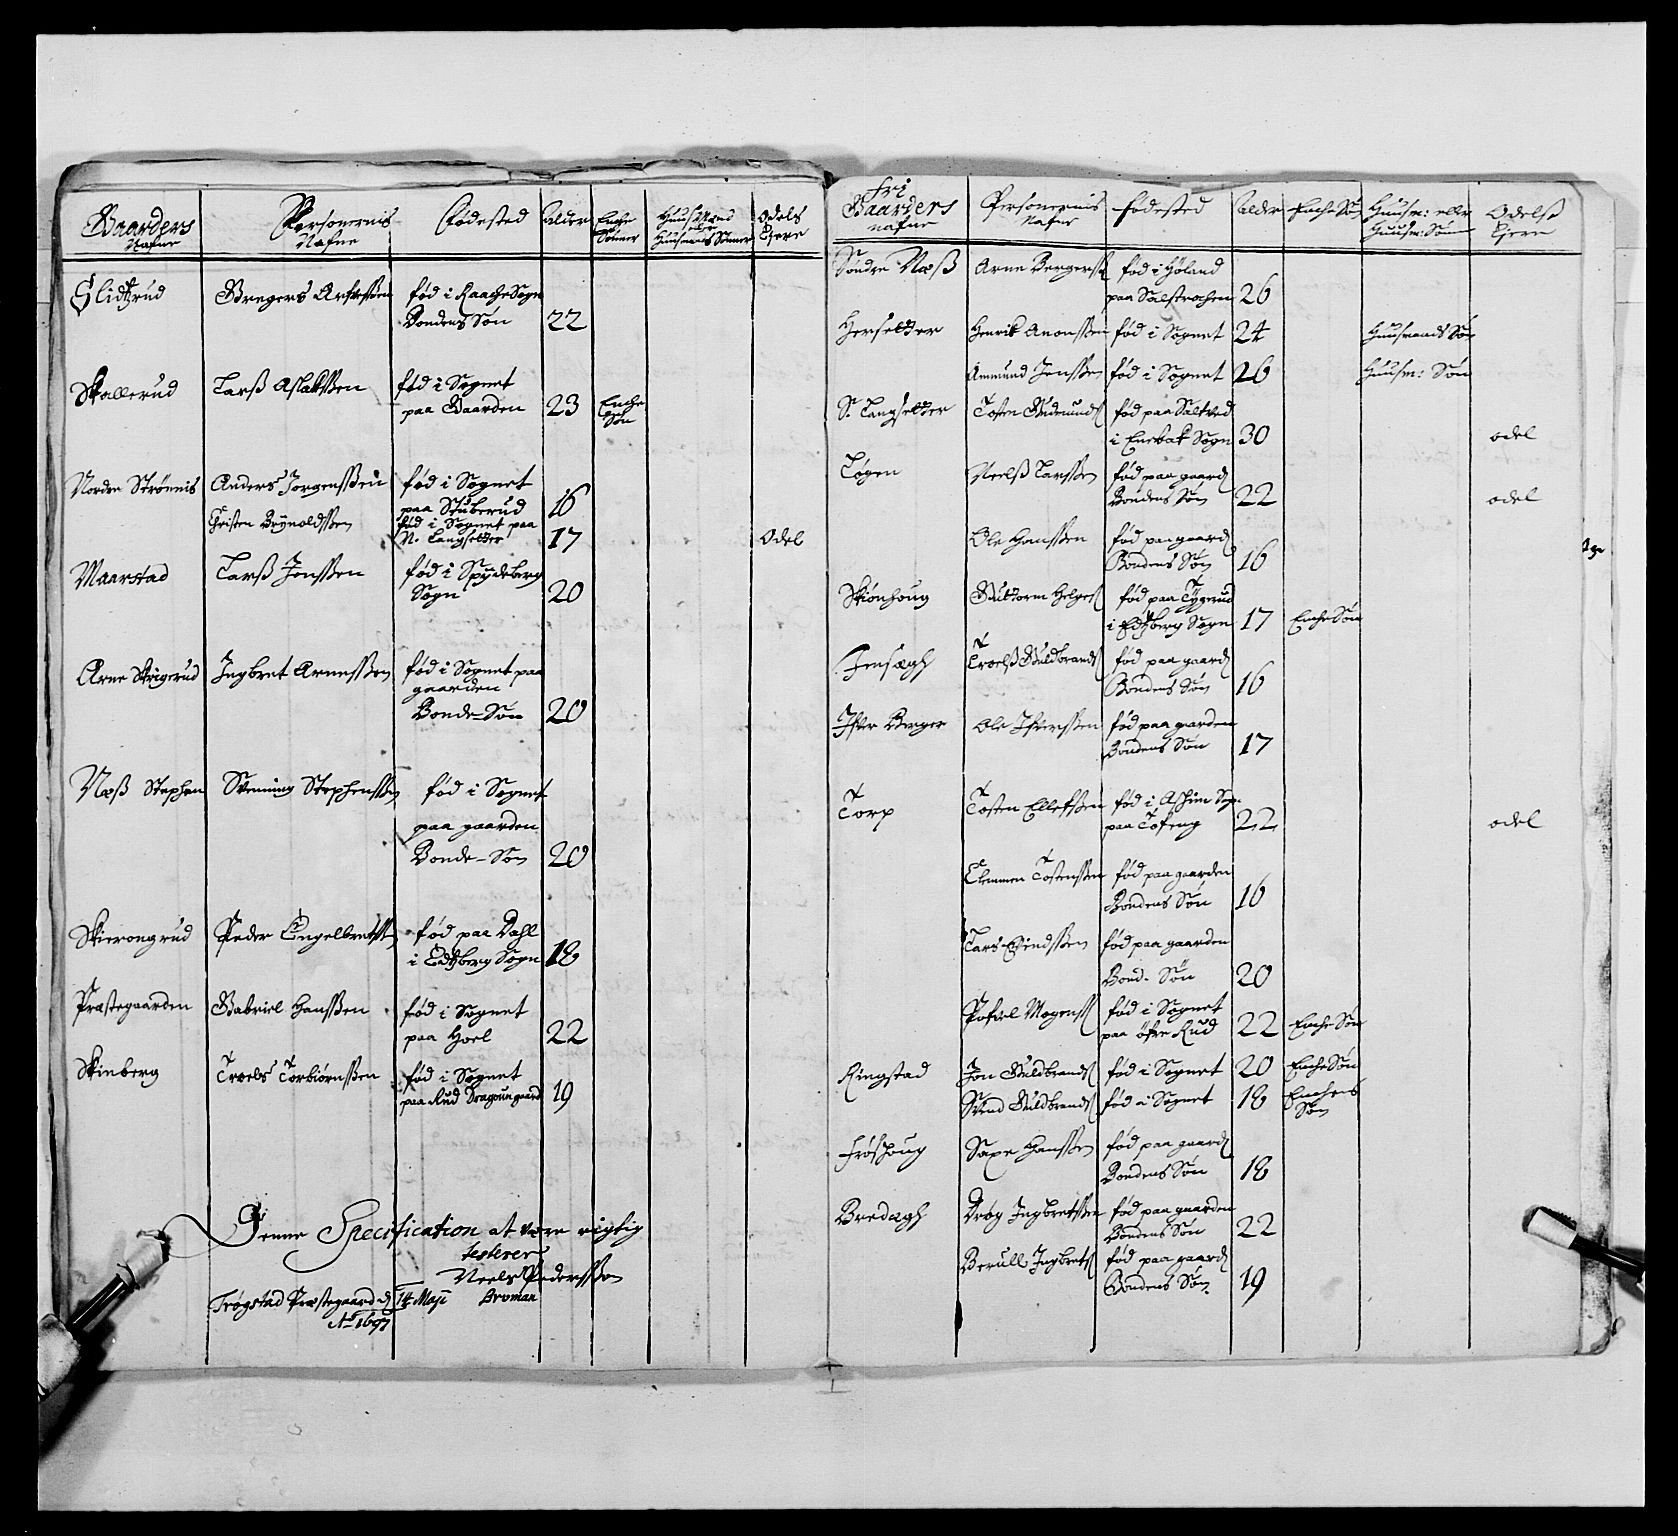 Gaarders Nafne | Personernis Nafne | Fødested | Alder | Enche Sønner | Huus Mænd eller Huusmands Sønner | Odels Eyere
Slidtzrud | Gregers Arfvessøn | fød i Raache Sogn
Bondens Søn | 22
Skallerud | Larß Aslakssen | fød i Sognet
paa Gaarden | 23 | Enche Søn
Nordre Strønnis | Anders Jørgenssøn | fød i Sognet
paa Stuberud | 16
Christen Brynoldssen | fød i Sognet paa
N. Langsetter | 17 | Odel
Maarstad | Larß Jenssen | fød i Spydeberg
Sogn | 20
Arne Skrigerud | Ingbret Arnessen | fød i Sognet paa
gaarden
Bonde-Søn | 20
Næß Stephen | Svenning Stephenssen | fød i Sognet
paa gaarden
Bonde-Søn | 20
Skierongrud | Peder Engelbretst | fød paa Dahl
i Edtzberg Sogn | 18
Præstegaarden | Gabriel Hanssen | fød i Sognet
paa Hoel | 22
Skinberg | Troels Torbiørnssen | fød i Sognet
paa Rud Dragoungaard | 19
Denne Specification at være rigtig
testerer
Neels Pederssøn
Trøgstad Præstegaard d. 14 Maji Broman
Ao 1697
fri
Gaarders nafne | Personernis Nafne | fødested | Alder | Enche Søn | Huusm: eller Huusm: Søn | Odelß Eyere
Søndre Næß | Arne Bergerss | fød i Høland
paa Salstrochen | 26
Hersetter | Henrik Anonssen | fød i Sognet | 24 | Huusmands Søn
Ammund Jenssen | fød i Sognet | 26 | Huusm: Søn
S. Langsetter | Tosten Gudmunds | fød paa Saltved
i Enebak Sogn | 30 | odel
Løgen | Neelß Larssen | fød paa gaard
Bondens Søn | 22 | odel
Ole Hanssen | fød paa gaard
Bondens Søn | 16
Skiønhoug | Guttorm Helges | fød paa Tygerud
i Edtzberg Sogn | 17 | Enche Søn
Jensegh | Troelß Guldbrands | fød paa gaard
Bondens Søn | 16
Ifver Berger | Ole Ifverssen | fød paa gaarden
Bondens Søn | 17
Torp | Tosten Ellefssen | fød i Aschim Sogn
paa Tofeng | 22 | odel
Clemmen Tostenssen | fød paa gaarden
Bondens Søn | 16
Lars Evindssen | fød paa gaarden
Bond-Søn | 20
Pofvel Mogenss | fød i Sognet
paa øfre Rud | 22 | Enche Søn
Ringstad | Jon Guldbrands | fød i Sognet | 20 | Enche Søn
Svend Guldbrands | fød i Sognet | 18 | Enches Søn
Frøshoug | Saxe Hanssen | fød paa gaard
Bondens Søn | 18
Bredægh | Drøg Ingbretssen | fød paa gaarden
Bondens Søn | 22
Berull Ingbrets | fød paa gaard
Bondens Søn | 19